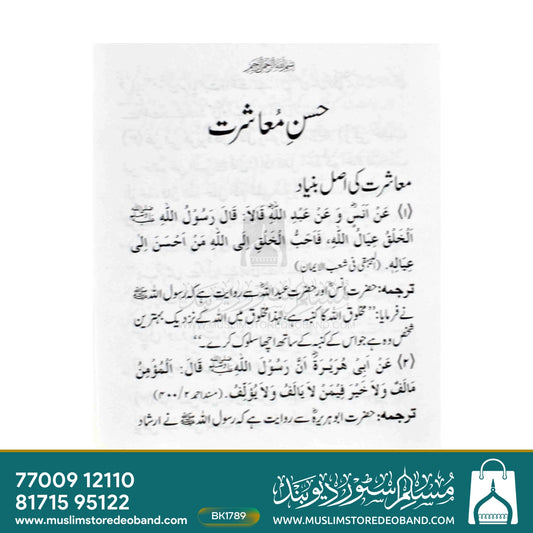 بسم اللہ الرحمن الرحیم
حسنِ مُعاشرت
معاشرت کی اصل بنیاد
(۱) عَنْ اَنَسٍؓ وَ عَنْ عَبْدِ اللهِؓ قَالَا: قَالَ رَسُوْلُ اللهِ ﷺ
اَلْخَلْقُ عِيَالُ اللهِ، فَاَحَبُّ الْخَلْقِ اِلَى اللهِ مَنْ اَحْسَنَ اِلٰى
عِيَالِهٖ. (البیہقی فی شعب الایمان)
ترجمہ: حضرت انسؓ اور حضرت عبداللہؓ سے روایت ہے کہ رسول اللہ ﷺ
نے فرمایا: ”مخلوق اللہ کا کنبہ ہے، لہٰذا مخلوق میں اللہ کے نزدیک بہترین
شخص وہ ہے جو اس کے کنبہ کے ساتھ اچھا سلوک کرے۔“
(۲) عَنْ اَبِیْ هُرَيْرَةَؓ اَنَّ رَسُوْلَ اللهِ ﷺ قَالَ: اَلْمُؤْمِنُ
مَالَفٌ وَلَا خَيْرَ فِيْمَنْ لَا يَالَفُ وَلَا يُؤْلَفُ. (مسند احمد ۲/۴۰۰)
ترجمہ: حضرت ابو ہریرہؓ سے روایت ہے کہ رسول اللہ ﷺ نے ارشاد
WWW.MUSLIMSTOREDEOBAND.COM
77009 12110
81715 95122
www.muslimstoredeoband.com
BK1789
مسلم سٹور دیوبند
WWW.MUSLIMSTOREDEOBAND.COM